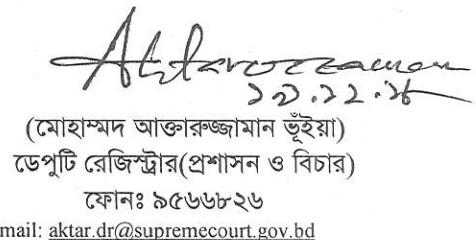 Aktaruzzaman
(মোহাম্মদ আক্তারুজ্জামান ভূঁইয়া)
ডেপুটি রেজিস্ট্রার(প্রশাসন ও বিচার)
ফোনঃ ৯৫৬৬৮২৬
mail: aktar.dr@supremecourt.gov.bd